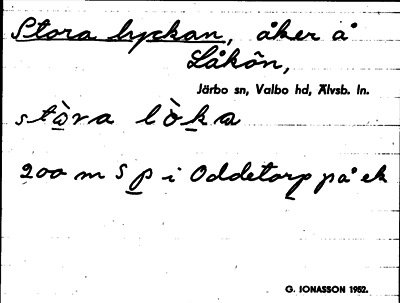 Stora lyckan, åker å
Låkön,
Järbo sn, Valbo hd, Älvsb. ln.
stò̲ra lò̲ka
200 m S p i Oddetorp på ek
G. IONASSON 1952.